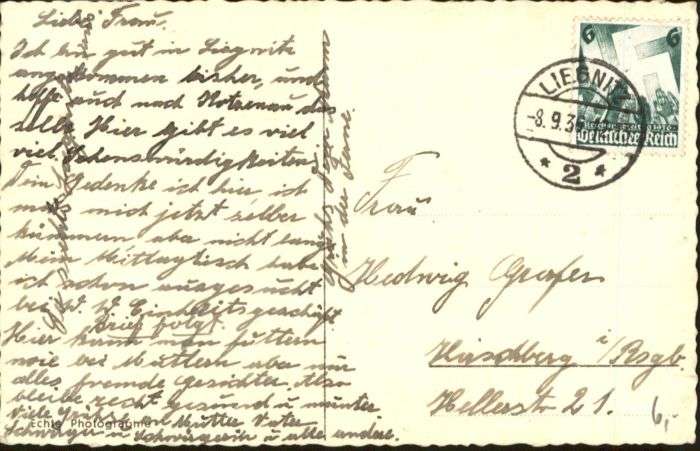 Liebe Frau.
Ich bin gut in Liegnitz
angekommen bisher, und
hoffe auch nach Kotzenau das
selbe. Hier gibt es viel
viel Sehenswürdigkeiten
Dein Gedenke ich hier, ich
muß mich jetzt selber
kümmern aber nicht lange
Mein Mittagtisch habe
ich schon ausgesucht
bei Einheitsgeschäft
Brief folgt.
Hier kann man futtern
wie bei Muttern aber nur
alles fremde Gesichter. Also
bleibe recht gesund u. munter.
Viele Grüße an Mutter Vater
Schwager u. Schwägerin u. alle andere.
in der Ferne.
Echte Photographie
LIEGNITZ
-8.9.36
* 2 *
6 6
Reichsparteitag 1936
Deutsches Reich
Frau
Hedwig Grafer
Hirschberg i/Rsgb.
Hellerstr 21.
6,-